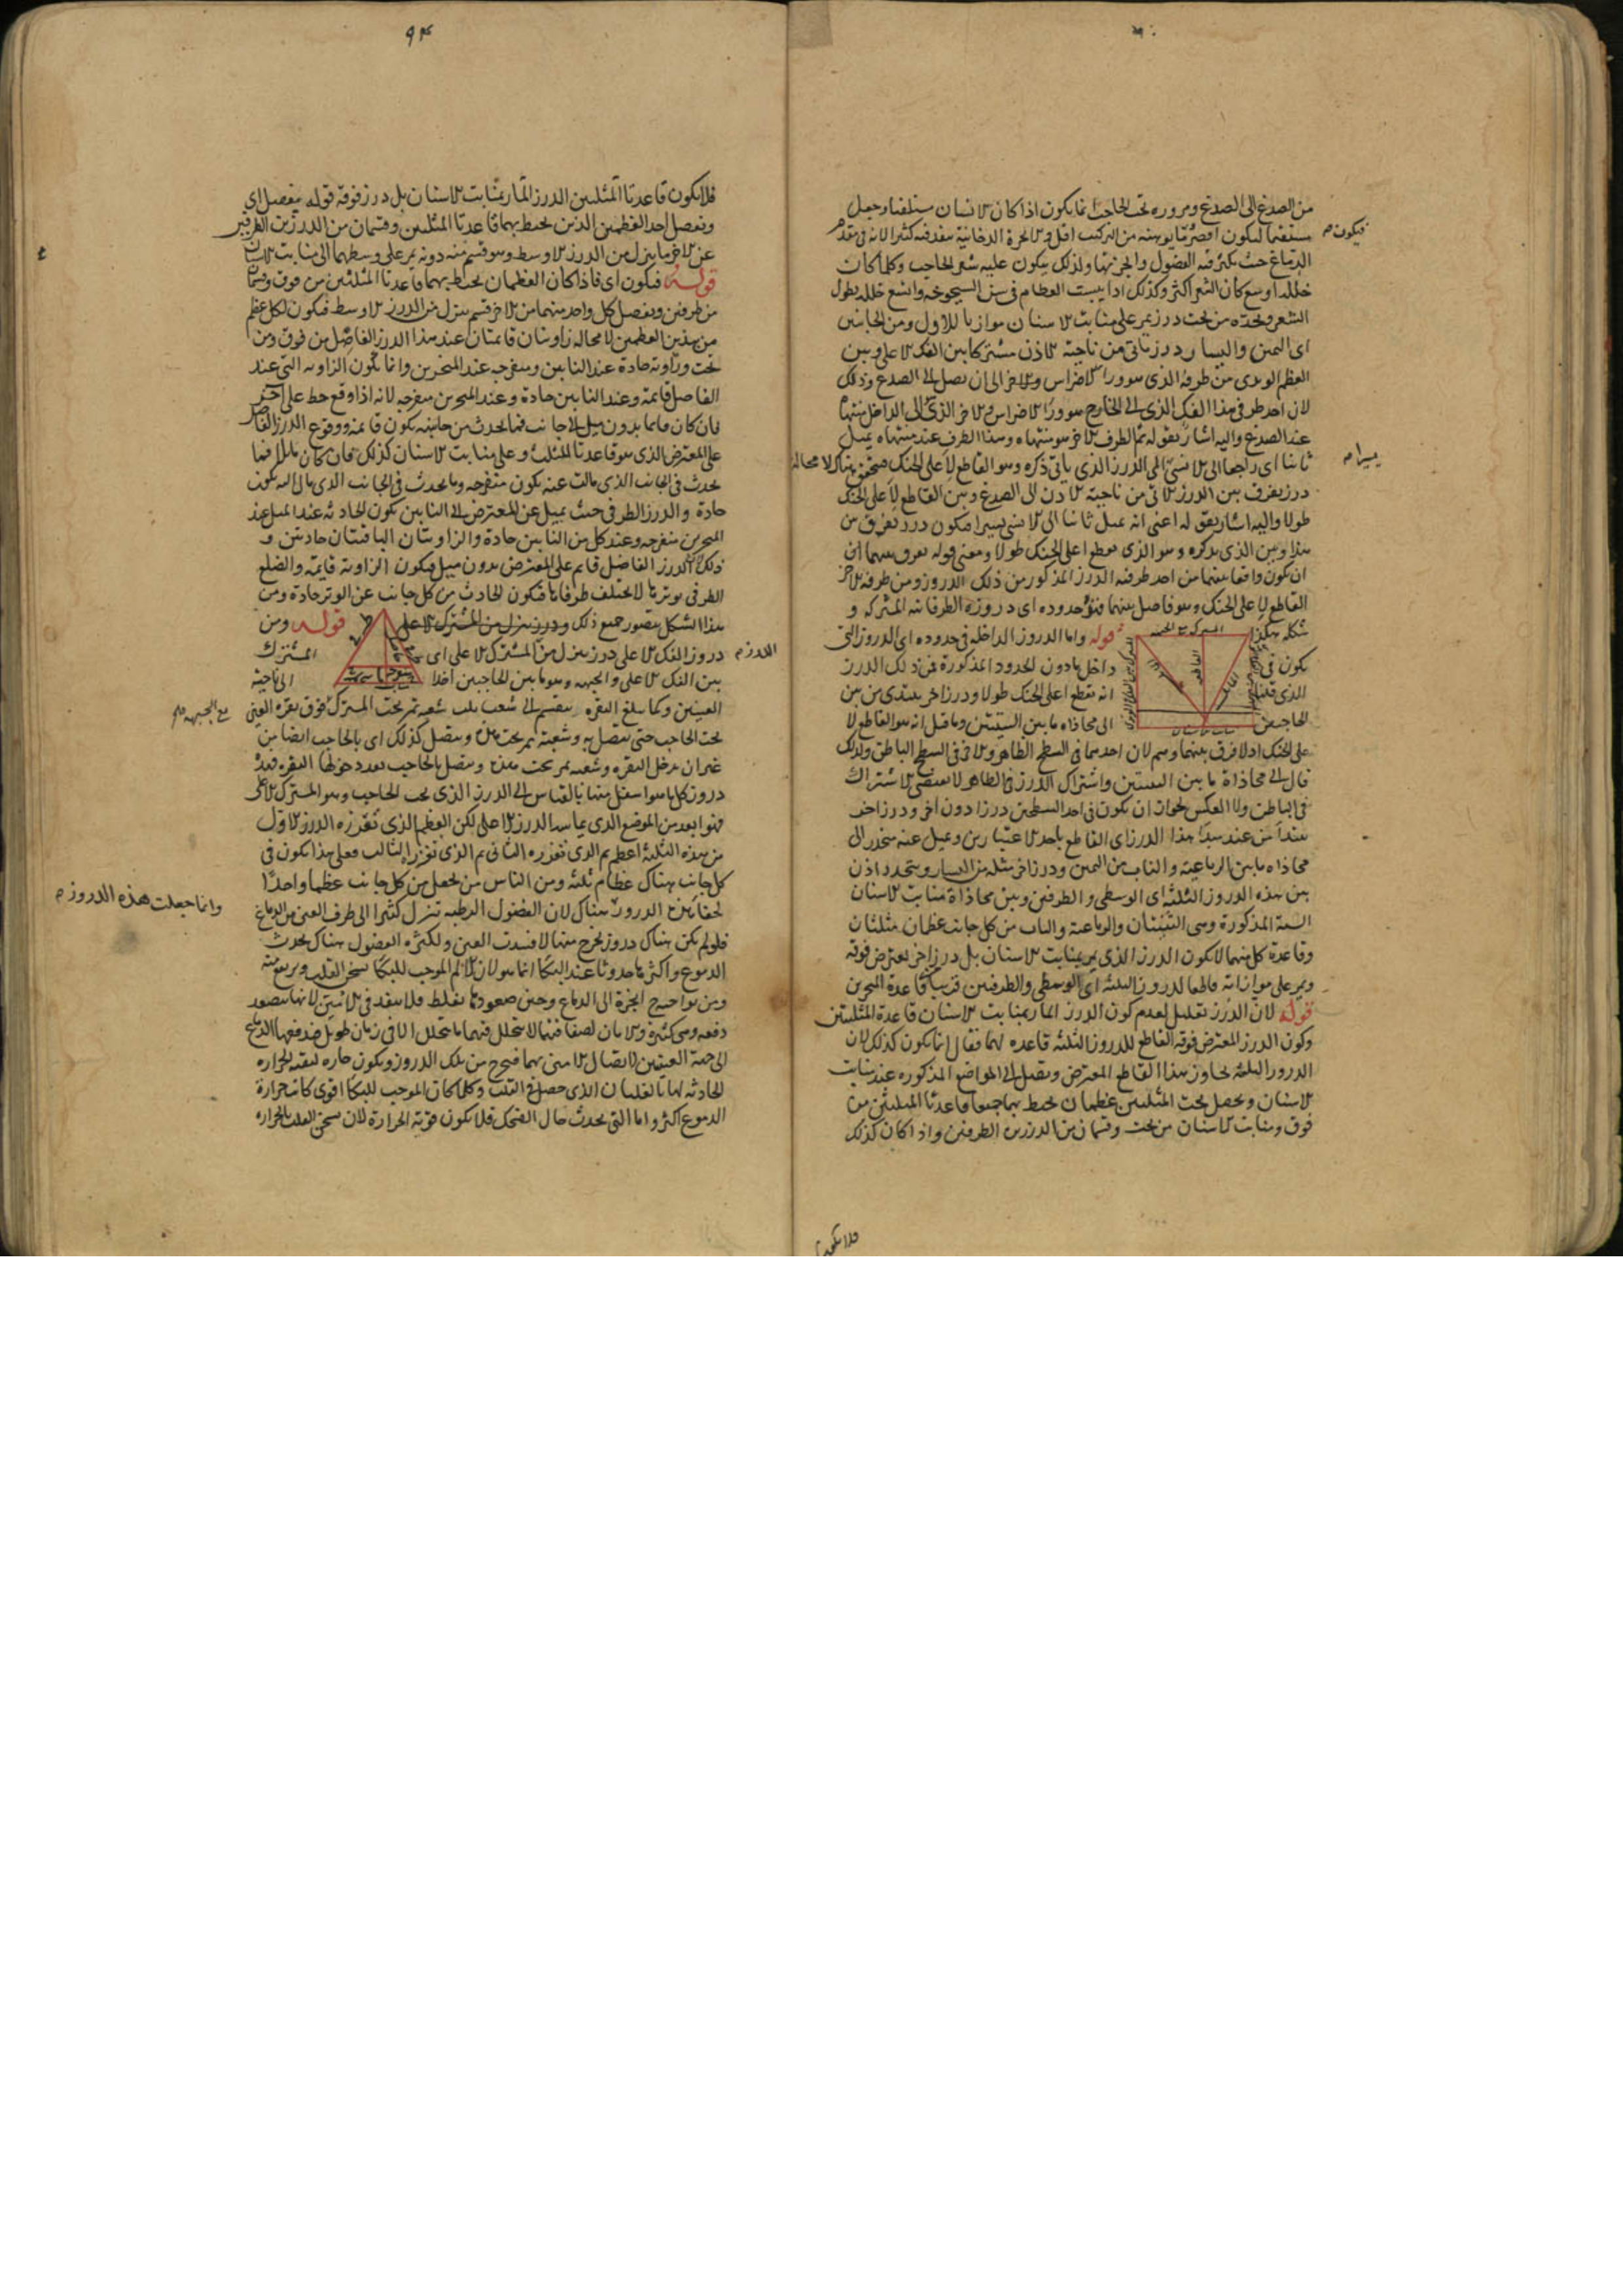 من الصدغ الى الصدغ ومروره تحت الحاجب انما يكون اذا كان الانسان مستلقيا وجعل
مستقيما ليكون اقصر مما يوهنه من التركيب اقل والابخرة الدخانية
الدماغ حيث يكثر فيه الفضول ولذلك يكون عليه شعر الحاجب وكلما كان
خلله اوسع كان الشعر اكثر وكذلك اذا يبست العظام في سن الشيخوخة واتسع خلله يطول
الشعر ويحده من تحت درز يمر على منابت الاسنان موازيا للاول ومن الجانبين
اى اليمين واليسار درز ياتى من ناحية الاذن مشتركا بين الفك الاعلى وبين
العظم الوتدى من طرفه الذى هو وراء الاضراس والاخر الى ان يصل الى الصدغ وذلك
لان احد طرفى هذا الفك الذى الى الخارج هو وراء الاضراس والاخر الذى الى الداخل منتهاه
عند الصدغ واليه اشار بقوله ثم الطرف الاخر هو منتهاه وهذا الطرف عند منتهاه يميل
ثانيا اى راجعا الى الانسى الى الدرز الذى ياتى ذكره وهو القاطع لاعلى الحنك فيتحقق هناك لا محالة
درز يفرق بين الدرز الاتى من ناحية الاذن الى الصدغ وبين القاطع لاعلى الحنك
طولا واليه اشار بقوله اعنى انه يميل ثانيا الى الانسى يسيرا فيكون درز يفرق بين
هذا وبين الذى نذكره وهو الذى يقطع اعلى الحنك طولا ومعنى قوله يفرق بينهما اى
ان يكون واقعا بينهما من احد طرفيه الدرز المذكور من ذلك الدروز ومن طرفه الاخر
القاطع لاعلى الحنك وهو فاصل بينهما فهو حدوده اى دروزه الطرفانية المشتركة و
شكله هكذا
قوله واما الدروز الداخلة فى حدوده اى الدروز التى
يكون فى داخل هادون الحدود المذكورة فمن ذلك الدرز
الذى قلنا انه يقطع اعلى الحنك طولا ودرز اخر يبتدى من بين
الحاجبين الى محاذاة ما بين الثنيتين وما قيل انه هو القاطع لا
على الحنك اذ لا فرق بينهما وهم لان احدهما فى السطح الظاهر والاخر فى السطح الباطن ولذلك
قال الى محاذاة ما بين الثنيتين واشتراك الدرز فى الظاهر لا يقتضى الاشتراك
فى الباطن ولا العكس لجواز ان يكون فى احد السطحين درزا دون اخر ودرز اخر
يبتدا من عند مبدا هذا الدرز اى القاطع باحد الاعتبارين ويميل عنه منحدر الى
محاذاة ما بين الرباعية والناب من اليمين ودرز اخر مثله من اليسار ويتحدد اذن
بين هذه الدروز الثلثة اى الوسطى والطرفين وبين محاذاة منابت الاسنان
الستة المذكورة وهى الثنيتان والرباعية والناب من كل جانب عظمان مثلثان
وقاعدة كل منهما لا يكون الدرز الذى يمر بمنابت الاسنان بل درز اخر يعترض فوقه
ويمر على موازاته قاطعا لدروز الثلثة اى الوسطى والطرفين قريبا قاعدة المنخرين
قوله لان الدرز تعليل لعدم كون الدرز المار بمنابت الاسنان قاعدة المثلثين
وكون الدرز المعترض فوقه القاطع للدروز الثلثة قاعدة لهما فقال انما يكون كذلك لان
الدروز الثلثة تجاوز هذا القاطع المعترض ويصل الى المواضع المذكورة عند منابت
الاسنان ويحصل تحت المثلثين عظمان يحيط بهما جميعا قاعدتا المثلثين من
فوق ومنابت الاسنان من تحت وقسمان من الدرزين الطرفين واذا كان كذلك
فلا يكون
فيكون
يسيرا
٩٢
فلا يكون قاعدتا المثلثين الدرز المار بمنابت الاسنان بل درز فوقه قوله يفصل اى
ويفصل احد العظمين الذين يحيط بهما قاعدتا المثلثين وقسمان من الدرزين الطرفين
عن الاخر ما ينزل من الدرز الاوسط وهو قسم منه دونه يمر على وسطهما الى منابت الاسنان
قوله فيكون اى فاذا كان العظمان يحيط بهما قاعدتا المثلثين من فوق وقسمان
من طرفين ويفصل كل واحد منهما من الاخر قسم ينزل من الدرز الاوسط فيكون لكل عظم
من هذين العظمين لا محالة زاويتان قائمتان عند هذا الدرز الفاصل من فوق ومن
تحت وزاوية حادة عند النابين ومنفرجة عند المنخرين وانما يكون الزاوية التى عند
الفاصل قائمة وعند النابين حادة وعند المنخرين منفرجة لانه اذا وقع خط على اخر
فان كان قائما بدون ميل الى جانب فما يحدث من جانبيه يكون قائمة ووقوع الدرز الفاصل
على المعترض الذى هو قاعدتا المثلث وعلى منابت الاسنان كذلك فان كان مائلا فما
يحدث فى الجانب الذى مالت عنه يكون منفرجة وما يحدث فى الجانب الذى مال اليه يكون
حادة والدرز الطرفى حيث يميل عن المعترض الى النابين يكون الحادثة عند الميل عند
المنخرين منفرجة وعند كل من النابين حادة والزاويتان الباقيتان حادتين و
ذلك لان الدرز الفاصل قائم على المعترض بدون ميل فيكون الزاوية قائمة والضلع
الطرفى يوترها لا يختلف طرفاها فيكون الحادث من كل جانب عن الوتر حادة ومن
هذا الشكل يتصور جميع ذلك ودرز ينزل من المشترك الاعلى قوله ومن
دروز الفك الاعلى درز ينزل من المشترك الاعلى اى المشترك
بين الفك الاعلى والجبهة وهو ما بين الحاجبين اخذا الى ناحية
العينين وكما يبلغ النقرة ينقسم الى شعب ثلث شعبة تمر تحت المشترك فوق نقرة العين
تحت الحاجب حتى يتصل به وشعبة تمر تحت هذه ويتصل كذلك اى بالحاجب ايضا من
غير ان يدخل النقرة وشعبة تمر تحت هذه ويتصل بالحاجب بعد دخولها النقرة فهذه
دروز كل ما هو اسفل منها بالقياس الى الدرز الذى تحت الحاجب وهو المشترك الاعلى
فهو ابعد من الموضع الذى يماسه الدرز الاعلى لكن العظم الذى تفرزه الدرز الاول
من هذه الثلثة اعظم ثم الذى تفرزه الثانى ثم الذى تفرزه الثالث فعلى هذا يكون فى
كل جانب هناك عظام ثلثة ومن الناس من يجعل من كل جانب عظما واحدا
لخفاء هذه الدروز هناك لان الفضول الرطبة تنزل كثيرا الى طرف العين من الدماغ
فلو لم يكن هناك دروز يخرج منها لافسدت العين ولكثرة الفضول هناك يحدث
الدموع واكثر ما حدوثا عند البكاء انما هو لان الالم الموجب للبكاء يسخن القلب ويرتفع منه
ومن نواحيه ابخرة الى الدماغ وحين صعودها يغلظ فلا ينفذ فى لانها يتصعد
دفعة وهى كثيرة لا يتحلل الا فى زمان طويل فيدفعها الدماغ
الى جهة العينين لاتصال بهما فيخرج من تلك الدروز ويكون حارة لبقية الحرارة
الحادثة لها بالغليان الذى حصل فى القلب وكلما كان الموجب للبكاء اقوى كانت حرارة
الدموع اكثر واما التى يحدث حال الضحك فلا يكون قوية الحرارة لان سخن القلب بالحرارة
الدرز
مع الجبهة
وانما جعلت هذه الدروز